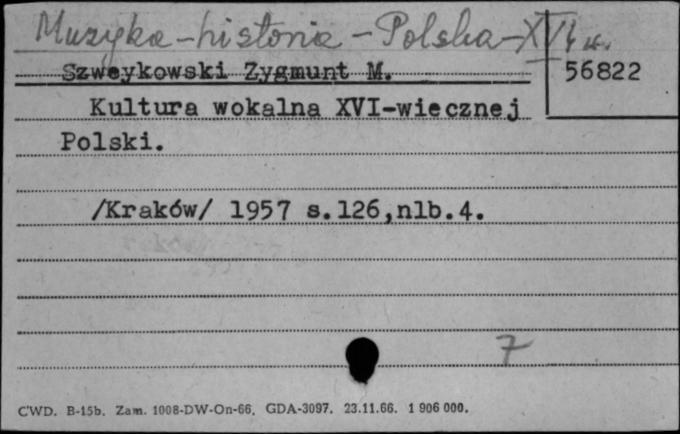 Muzyka - historia - Polska - XVI w.
Szweykowski Zygmunt M.
56822
Kultura wokalna XVI-wiecznej
Polski.
/Kraków/ 1957 s.126,nlb.4.
7
CWD. B-15b. Zam. 1008-DW-On-66. GDA-3097. 23.11.66. 1 906 000.